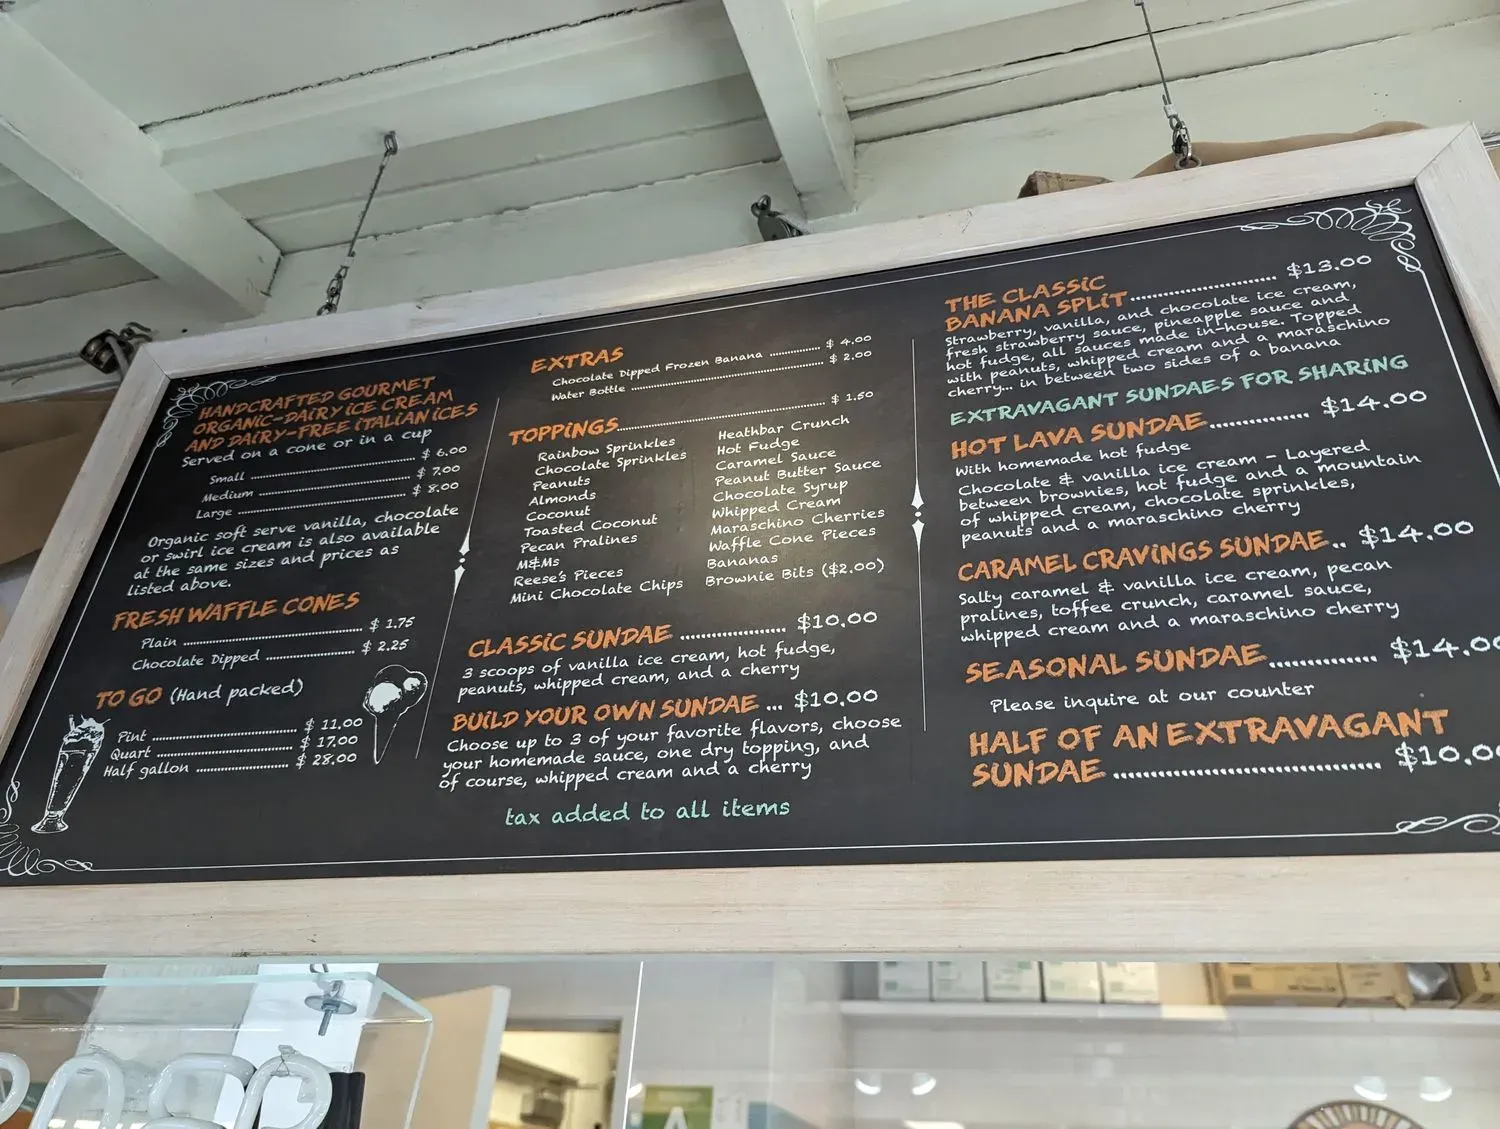 HANDCRAFTED GOURMET
ORGANIC-DAIRY ICE CREAM
AND DAIRY-FREE ITALIAN ICES
Served on a cone or in a cup
Small $ 6.00
Medium $ 7.00
Large $ 8.00
Organic soft serve vanilla, chocolate
or swirl ice cream is also available
at the same sizes and prices as
listed above.
FRESH WAFFLE CONES
Plain $ 1.75
Chocolate Dipped $ 2.25
TO GO (Hand packed)
Pint $ 11.00
Quart $ 17.00
Half gallon $ 28.00
EXTRAS
Chocolate Dipped Frozen Banana $ 4.00
Water Bottle $ 2.00
TOPPINGS $ 1.50
Rainbow Sprinkles
Chocolate Sprinkles
Peanuts
Almonds
Coconut
Toasted Coconut
Pecan Pralines
M&Ms
Reese's Pieces
Mini Chocolate Chips
Heathbar Crunch
Hot Fudge
Caramel Sauce
Peanut Butter Sauce
Chocolate Syrup
Whipped Cream
Maraschino Cherries
Waffle Cone Pieces
Bananas
Brownie Bits ($2.00)
CLASSIC SUNDAE $10.00
3 scoops of vanilla ice cream, hot fudge,
peanuts, whipped cream, and a cherry
BUILD YOUR OWN SUNDAE ... $10.00
Choose up to 3 of your favorite flavors, choose
your homemade sauce, one dry topping, and
of course, whipped cream and a cherry
tax added to all items
THE CLASSIC
BANANA SPLIT $13.00
Strawberry, vanilla, and chocolate ice cream,
fresh strawberry sauce, pineapple sauce and
hot fudge, all sauces made in-house. Topped
with peanuts, whipped cream and a maraschino
cherry... in between two sides of a banana
EXTRAVAGANT SUNDAES FOR SHARING
HOT LAVA SUNDAE $14.00
With homemade hot fudge
Chocolate & vanilla ice cream - Layered
between brownies, hot fudge and a mountain
of whipped cream, chocolate sprinkles,
peanuts and a maraschino cherry
CARAMEL CRAVINGS SUNDAE.. $14.00
Salty caramel & vanilla ice cream, pecan
pralines, toffee crunch, caramel sauce,
whipped cream and a maraschino cherry
SEASONAL SUNDAE $14.00
Please inquire at our counter
HALF OF AN EXTRAVAGANT
SUNDAE $10.00
A